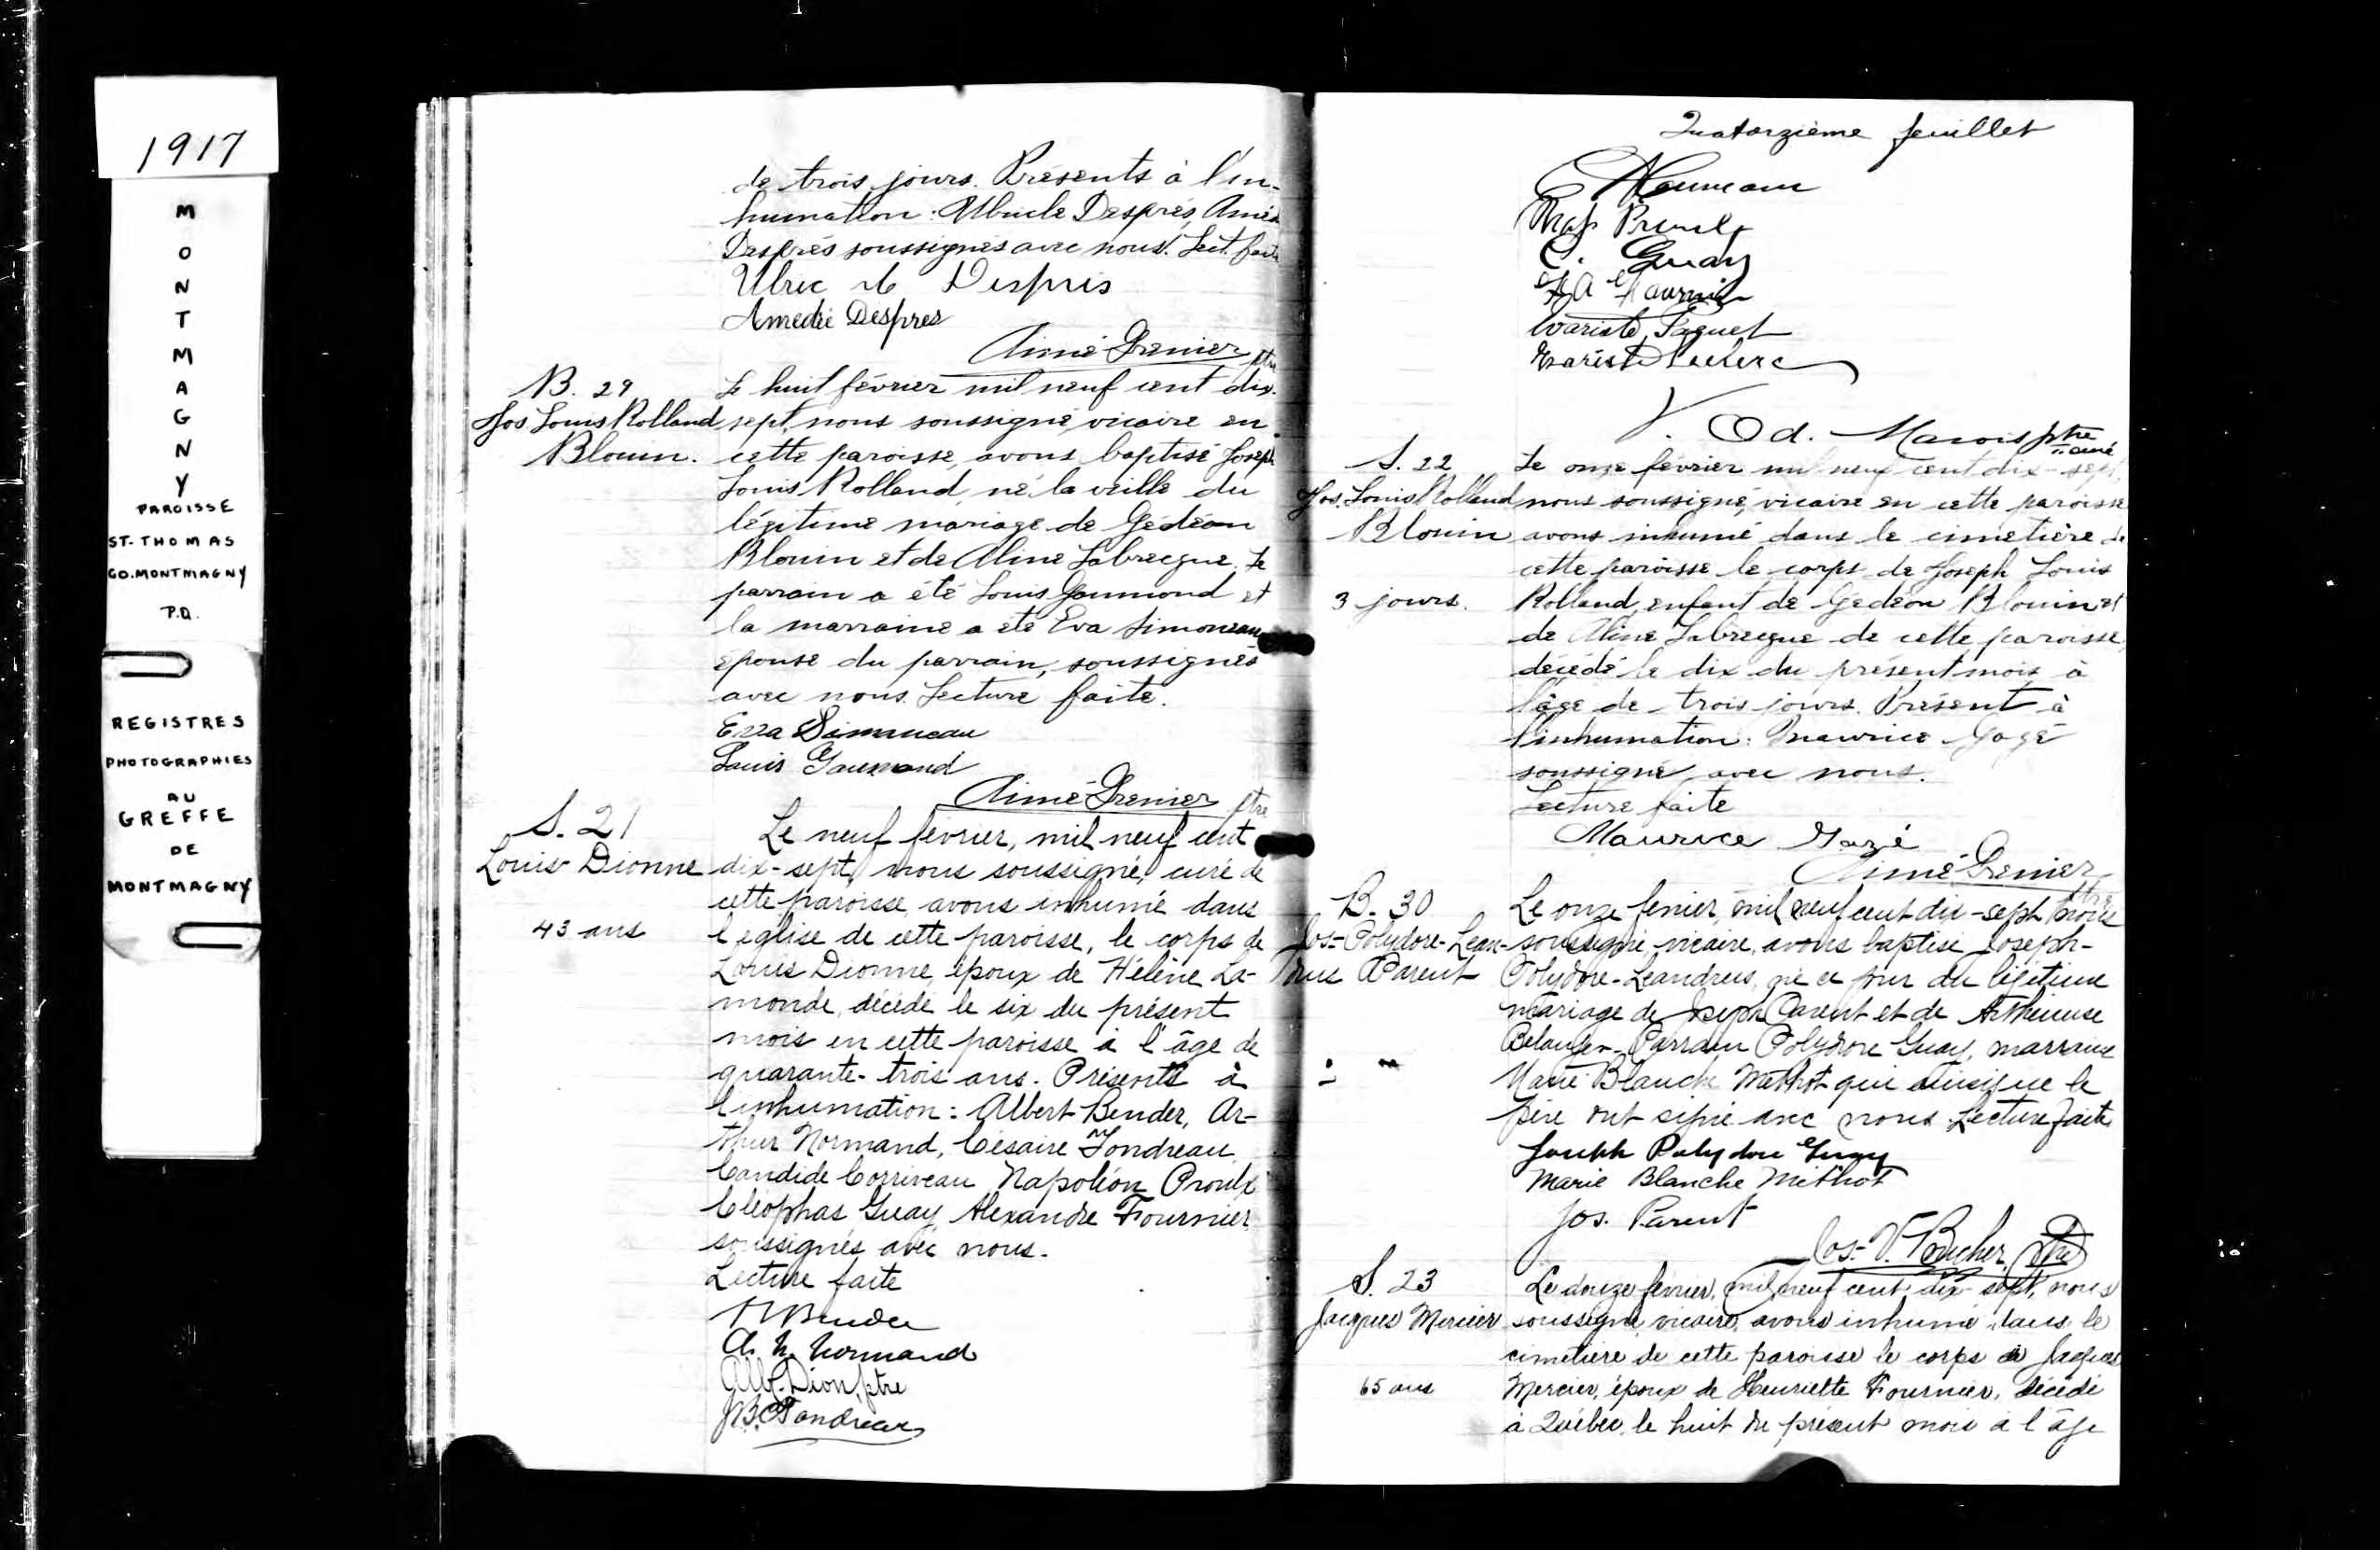 1917
MONTMAGNY
PAROISSE
ST-THOMAS
CO. MONTMAGNY
P.Q.
REGISTRES
PHOTOGRAPHIES
AU
GREFFE
DE
MONTMAGNY
de trois jours. Présents à l'in-
humation: Després, Amédé
Després soussignés avec nous. Lect. faite
Ulric Després
Amedée Després
Aimé Grenier ptre
B. 29
Jos Louis Rolland
Blouin.
Le huit février mil neuf cent dix-
sept, nous soussigné, vicaire en
cette paroisse, avons baptisé Joseph
Louis Rolland né la veille du
légitime mariage de Gédéon
Blouin et de Aline Labrecque. Le
parrain a été Louis Gaumond et
la marraine a été Eva Simoneau
épouse du parrain, soussignés
avec nous. Lecture faite.
Eva Simoneau
Louis Gaumond
Aimé Grenier ptre
S. 21
Louis Dionne
43 ans
Le neuf février, mil neuf cent
dix-sept, nous soussigné, curé de
cette paroisse avons inhumé dans
l'église de cette paroisse, le corps de
Louis Dionne, époux de Hélène La-
monde, décédé le six du présent
mois en cette paroisse à l'âge de
quarante-trois ans. Présents à
l'inhumation: Albert Bender, Ar-
thur Normand, Césaire Tondreau
Candide Corriveau Napoléon Proulx
Cléophas Guay, Alexandre Fournier
soussignés avec nous.
Lecture faite
Bender
A. N. Normand
Alf. Dion, ptre
J.B.C. Tondreau
Quatorzième feuillet
Nap Proulx
C. Guay
A Fournier
Evariste Paquet
Evariste Leclerc
V. Od. Marois ptre
curé
S. 22
Jos. Louis Rolland
Blouin
3 jours.
Le onze février mil neuf cent dix-sept,
nous soussigné, vicaire en cette paroisse
avons inhumé dans le cimetière de
cette paroisse le corps de Joseph Louis
Rolland, enfant de Gédéon Blouin et
de Aline Labrecque de cette paroisse,
décédé le dix du présent mois à
l'âge de trois jours. Présent à
l'inhumation: Maurice Gagé
soussigné avec nous.
Lecture faite
Maurice Gazé
Aimé Grenier
ptre
B. 30
Jos-Polydore-Lean-
drus Parent
Le onze février, mil neuf cent dix-sept nous
soussigné, vicaire, avons baptisé Joseph-
Polydore-Leandrus, né ce jour du légitime
mariage de Joseph Parent et de Arthémise
Belanger. Parrain Polydore Guay, marraine
Marie Blanche Méthot qui ainsi que le
père ont signé avec nous. Lecture faite
Joseph Polydore Guay
Marie Blanche Méthot
Jos. Parent
Jos. V. Bucher, Ptre
S. 23
Jacques Mercier
65 ans
Le douze février, mil neuf cent dix-sept, nous
soussigné, vicaire, avons inhumé dans le
cimetière de cette paroisse le corps de Jacques
Mercier, époux de Henriette Fournier, décédé
à Québec le huit du présent mois à l'âge